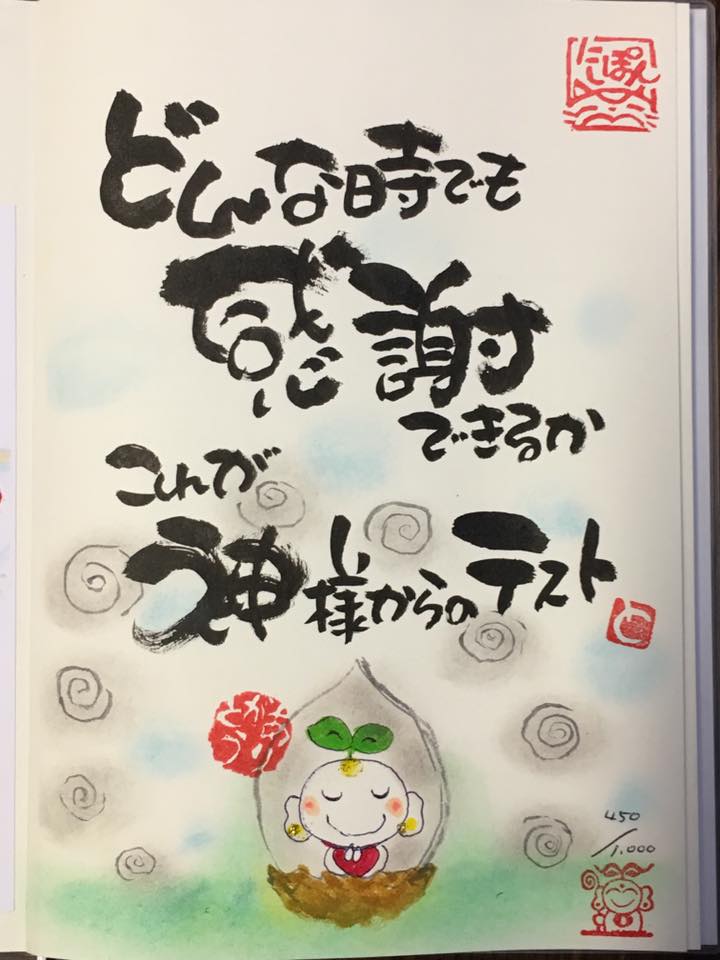 どんな時でも
感謝
できるか
これが
神様からのテスト
にしぽん
450
/1.000